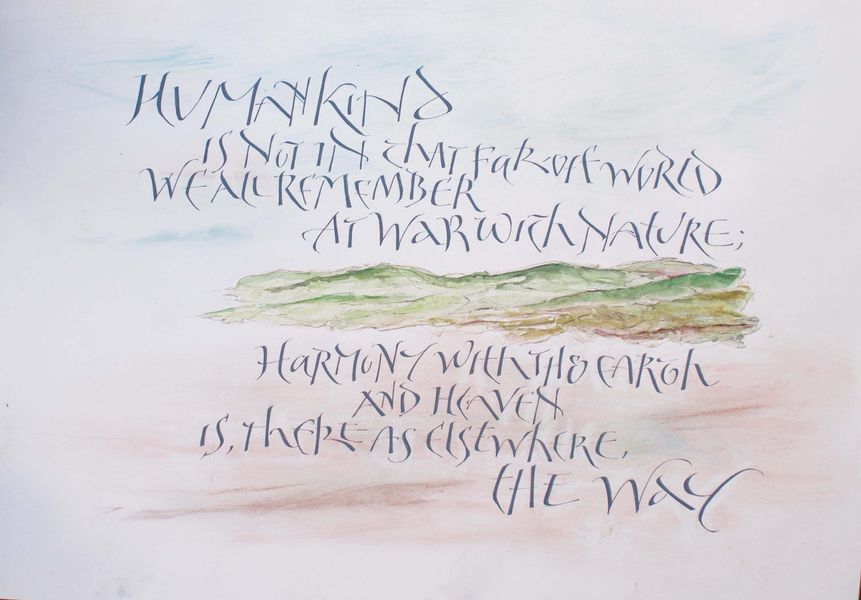 HUMANKIND
IS NOT IN THAT FAR-OFF WORLD
WE ALL REMEMBER
AT WAR WITH NATURE;
HARMONY WITH THE EARTH
AND HEAVEN
IS, THERE AS ELSEWHERE,
THE WAY